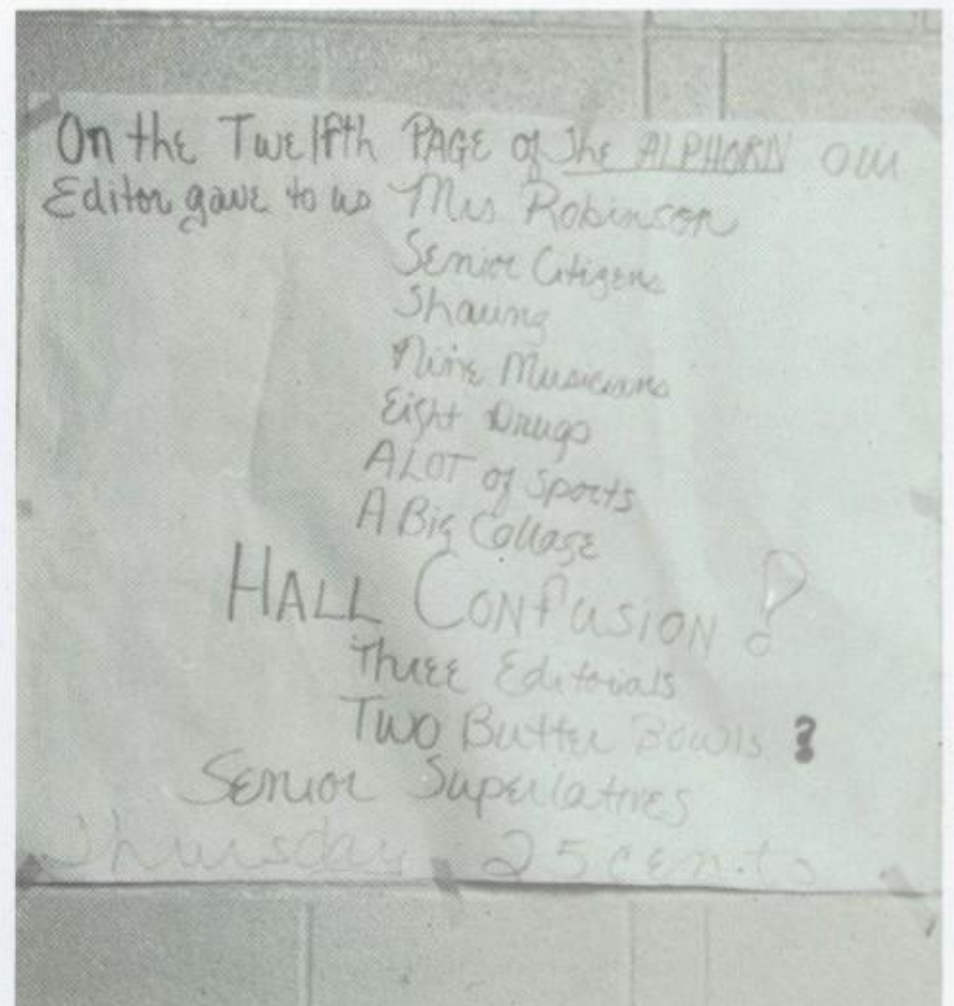 On the Twelfth PAGE of The ALPHORN our
Editor gave to us Mrs. Robinson
Senior Citizens
Sharing
Nine Musicians
Eight Drugs
A LOT of Sports
A Big Collage
HALL CONFUSION!
Three Editorials
Two Butter Bowls?
Senior Superlatives
Thursday, 25 cents